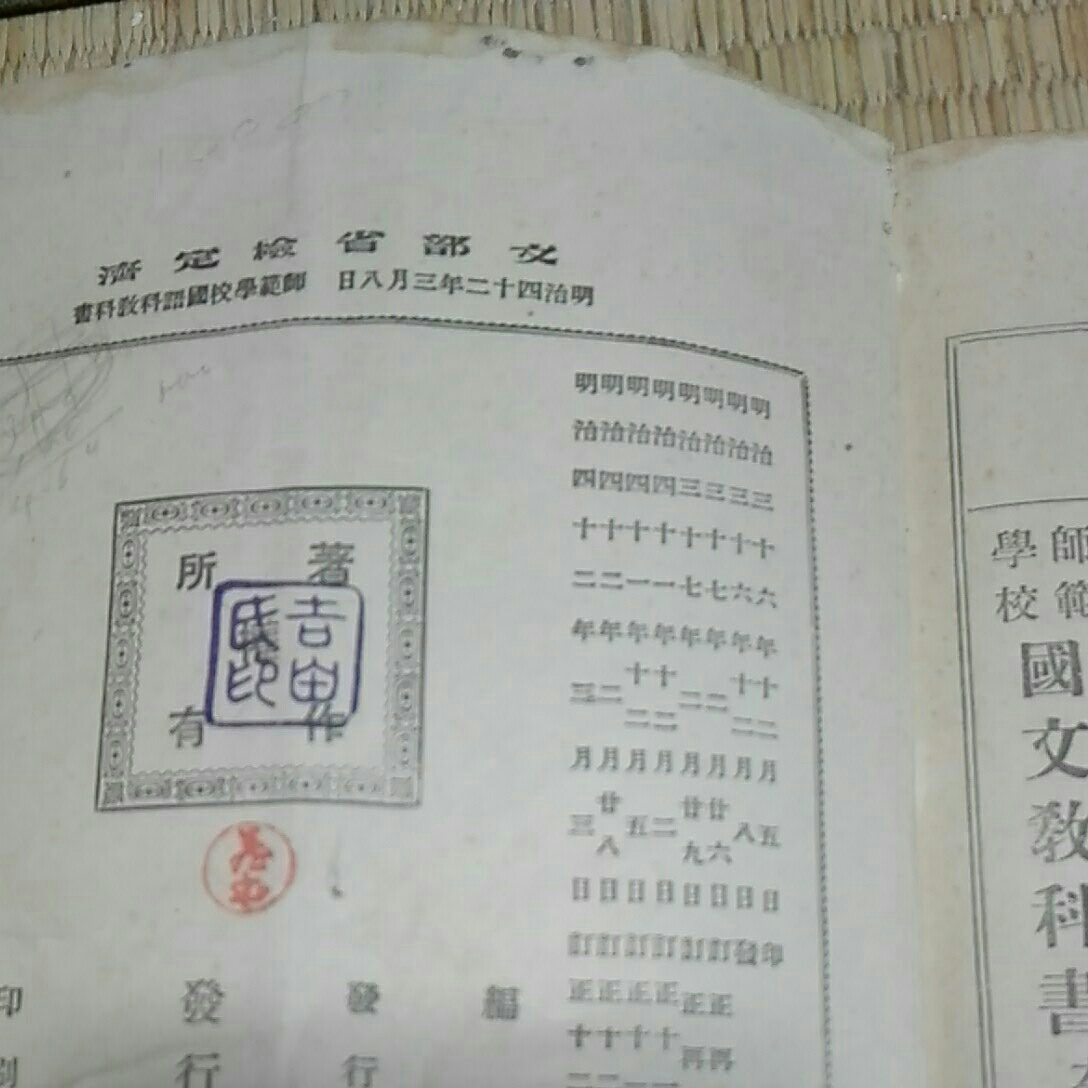 師範
學校
國文教科書
文部省檢定濟
明治四十二年三月八日 師範學校國語科教科書
明治三十六年十二月五日印
明治三十六年十二月八日發
明治三十七年二月廿六日訂正再
明治三十七年二月廿九日訂正再
明治四十一年十二月二日訂正十
明治四十一年十二月五日訂正十
明治四十二年二月廿八日訂正十
明治四十二年三月三日訂正十
著作
所有
吉田
編
發行
發行
印